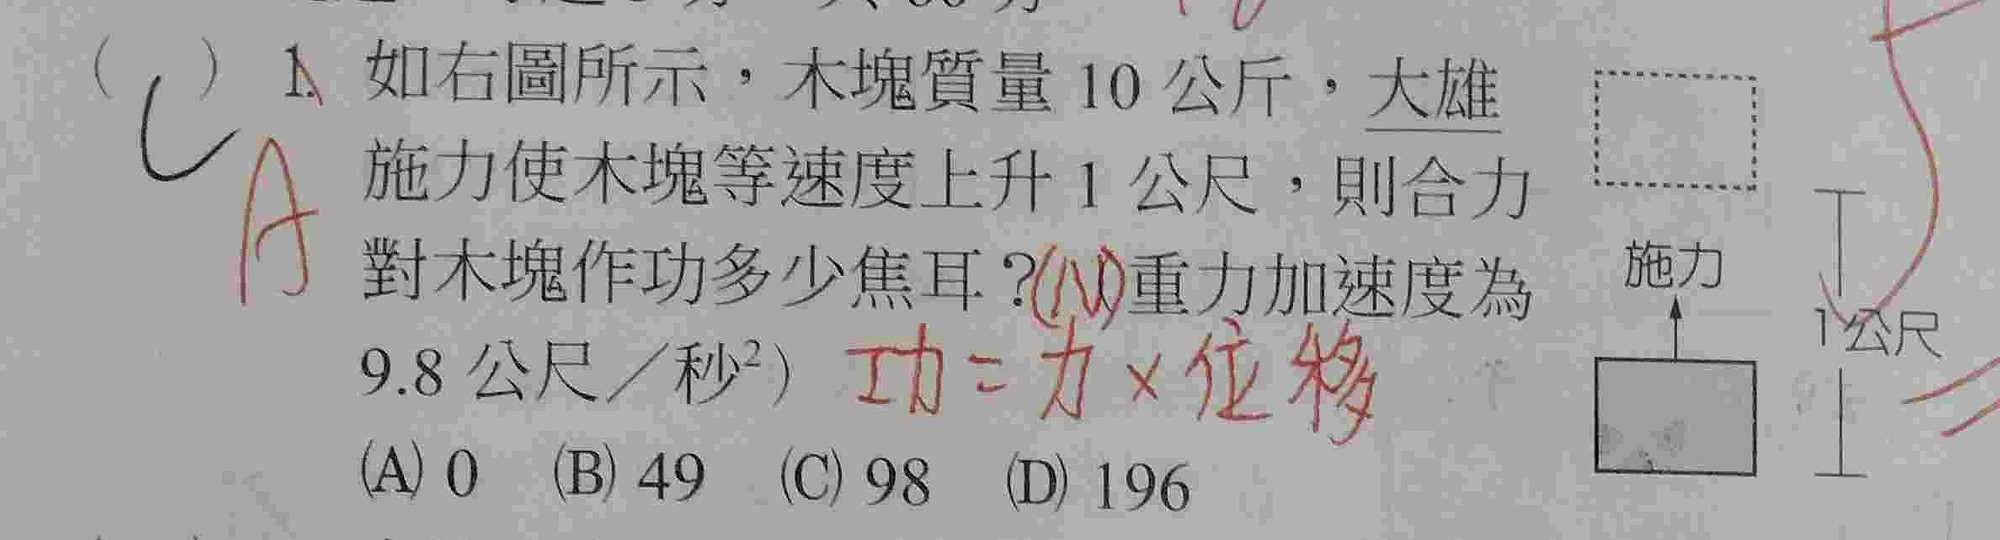 (C) 1. 如右圖所示，木塊質量 10 公斤，大雄
A 施力使木塊等速度上升 1 公尺，則合力
對木塊作功多少焦耳？(N)重力加速度為
9.8 公尺／秒²) 功=力×位移
(A) 0 (B) 49 (C) 98 (D) 196
施力
1公尺